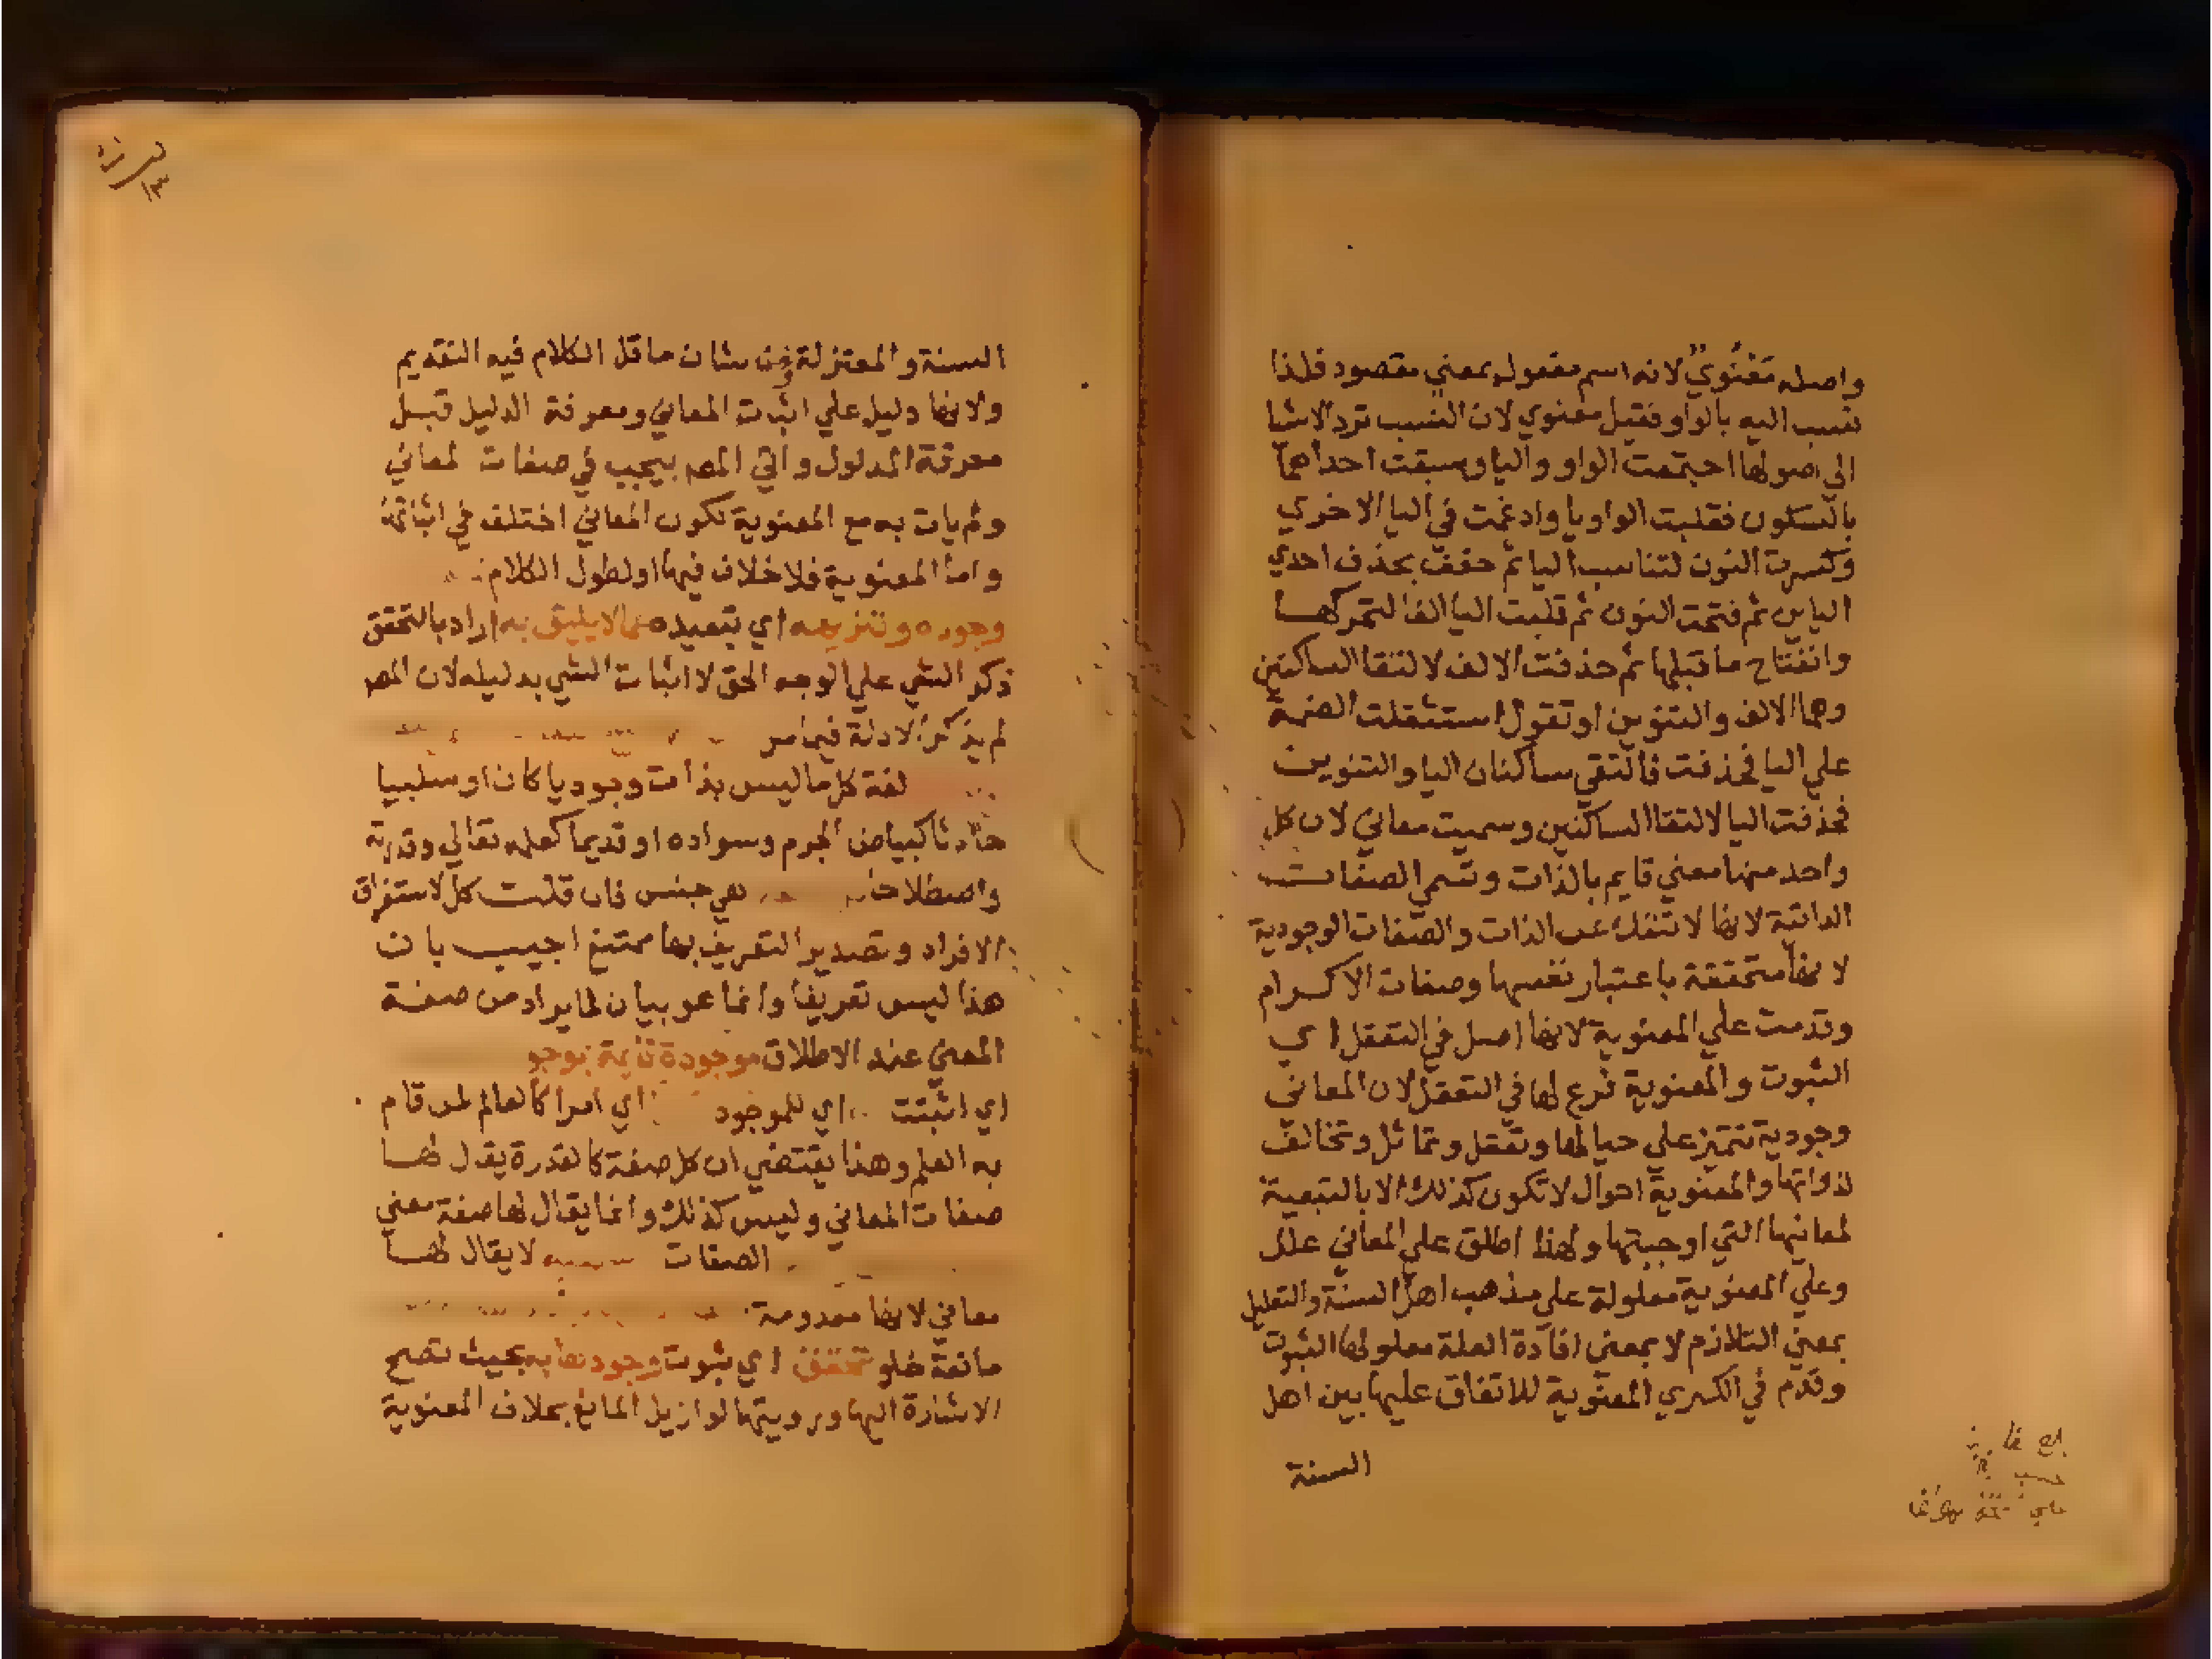 واصله مَعْنُويٌ لانه اسم مفعول بمعني مقصود فلذا
نسب اليه بالواو فقيل معنوي لان النسب ترد الاشيا
الي اصولها اجتمعت الواو واليا وسبقت احداهما
بالسكون فقلبت الواو يا وادغمت في اليا الاخري
وكسرت النون لتناسب اليا ثم خفف بحذف احدي
اليايين ثم فتحت النون ثم قلبت اليا الفا لتحركها
وانفتاح ما قبلها ثم حذفت الالف لالتقا الساكنين
وهما الالف والتنوين او تقول استثقلت الضمة
علي اليا فحذفت فالتقي ساكنان اليا والتنوين
فحذفت اليا لالتقا الساكنين وسميت معاني لان كل
واحد منها معني قايم بالذات وتسمي الصفات
الذاتية لانها لا تنفك عن الذات والصفات الوجودية
لانها متحققة باعتبار نفسها وصفات الاكرام
وقدمت علي المعنوية لانها اصل في التعقل اي
الثبوت والمعنوية فرع لها في التعقل لان المعاني
وجودية تتميز علي حيالها وتعقل وتماثل وتخالف
لذواتها والمعنوية احوال لا تكون كذلك الا بالتبعية
لمعانيها التي اوجبتها ولهذا اطلق علي المعاني علل
وعلي المعنوية معلولة علي مذهب اهل السنة والتعليل
بمعني التلازم لا بمعني افادة العلة معلولها الثبوت
وقدم في الكبري المعنوية للاتفاق عليها بين اهل
السنة
السنة والمعتزلة ومن شان ما قل الكلام فيه التقديم
ولانها دليل علي اثبات المعاني ومعرفة الدليل قبل
معرفة المدلول واتي المصـ بيجب في صفات المعاني
ولم يات به مع المعنوية لكون المعاني اختلف في اثباتها
واما المعنوية فلا خلاف فيها او لطول الكلام
وجوده وتنزيهه اي تبعيده عما لا يليق به اراد بالتحقق
ذكر الشي علي الوجه الحق لا اثبات الشي بدليله لان المصـ
لم يذكر الادلة فيما مر
لغة كل ما ليس بذات وجوديا كان او سلبيا
حادثا كبياض الجرم وسواده او قديما كعلمه تعالي وقدرته
واصطلاحا هي جنس فان قلت كل لاستغراق
الافراد وتصدير التعريف بها ممتنع اجيب بان
هذا ليس تعريفا وانما هو بيان لما يراد من صفة
المعني عند الاطلاق موجودة قايمة بموجو
اي اثبتت اي للموجود اي امرا كالعالم لمن قام
به العلم وهذا يقتضي ان كل صفة كالقدرة يقال لها
صفات المعاني وليس كذلك وانما يقال لها صفة معني
الصفات لا يقال لها
معاني لانها معدومة
مانعة خلو تحقق اي بثبوت وجودها به بحيث تصح
الاشارة اليها ورويتها لو ازيل المانع بخلاف المعنوية